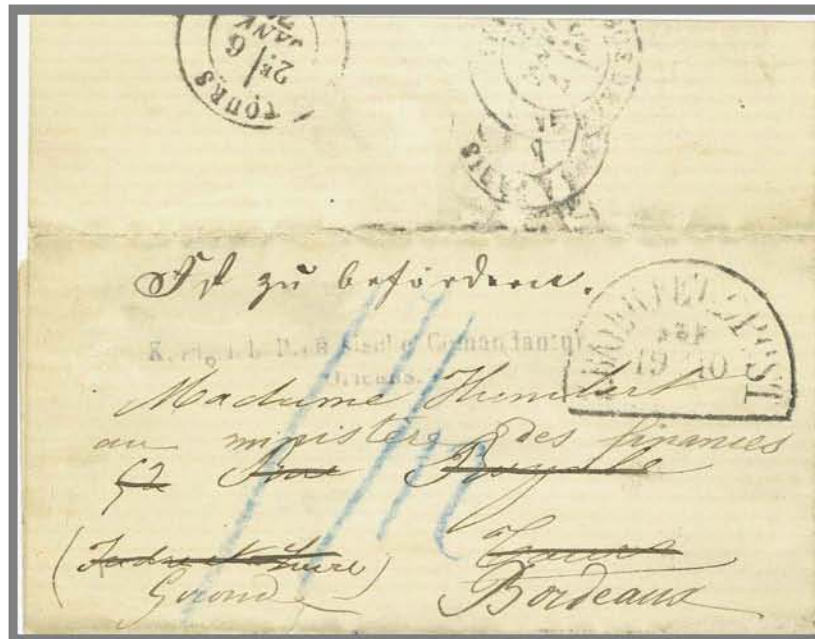 TOURS
2E/
6
JANV
Ist zu befördern.
Comandantur
Orleans.
POST
19 10
Madame Humbert
au ministère des finances
52 Rue Royale
(Indre et Loire) Tours
Gironde Bordeaux